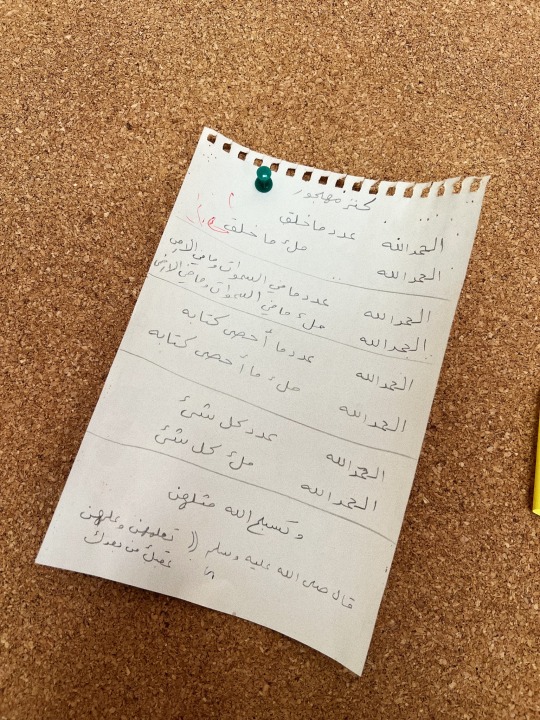 كنز مهجور
الحمد الله عدد ما خلق
الحمد الله ملء ما خلق
الحمد الله عدد ما في السموات وما في الارض
الحمد الله ملء ما في السموات وما في الارض
الحمد الله عدد ما أحصى كتابه
الحمد الله ملء ما أحصى كتابه
الحمد الله عدد كل شئ
الحمد الله ملء كل شئ
وتسبح الله مثلهن
قال صلى الله عليه وسلم (( تعلمهن وعلمهن
عقبك من بعدك